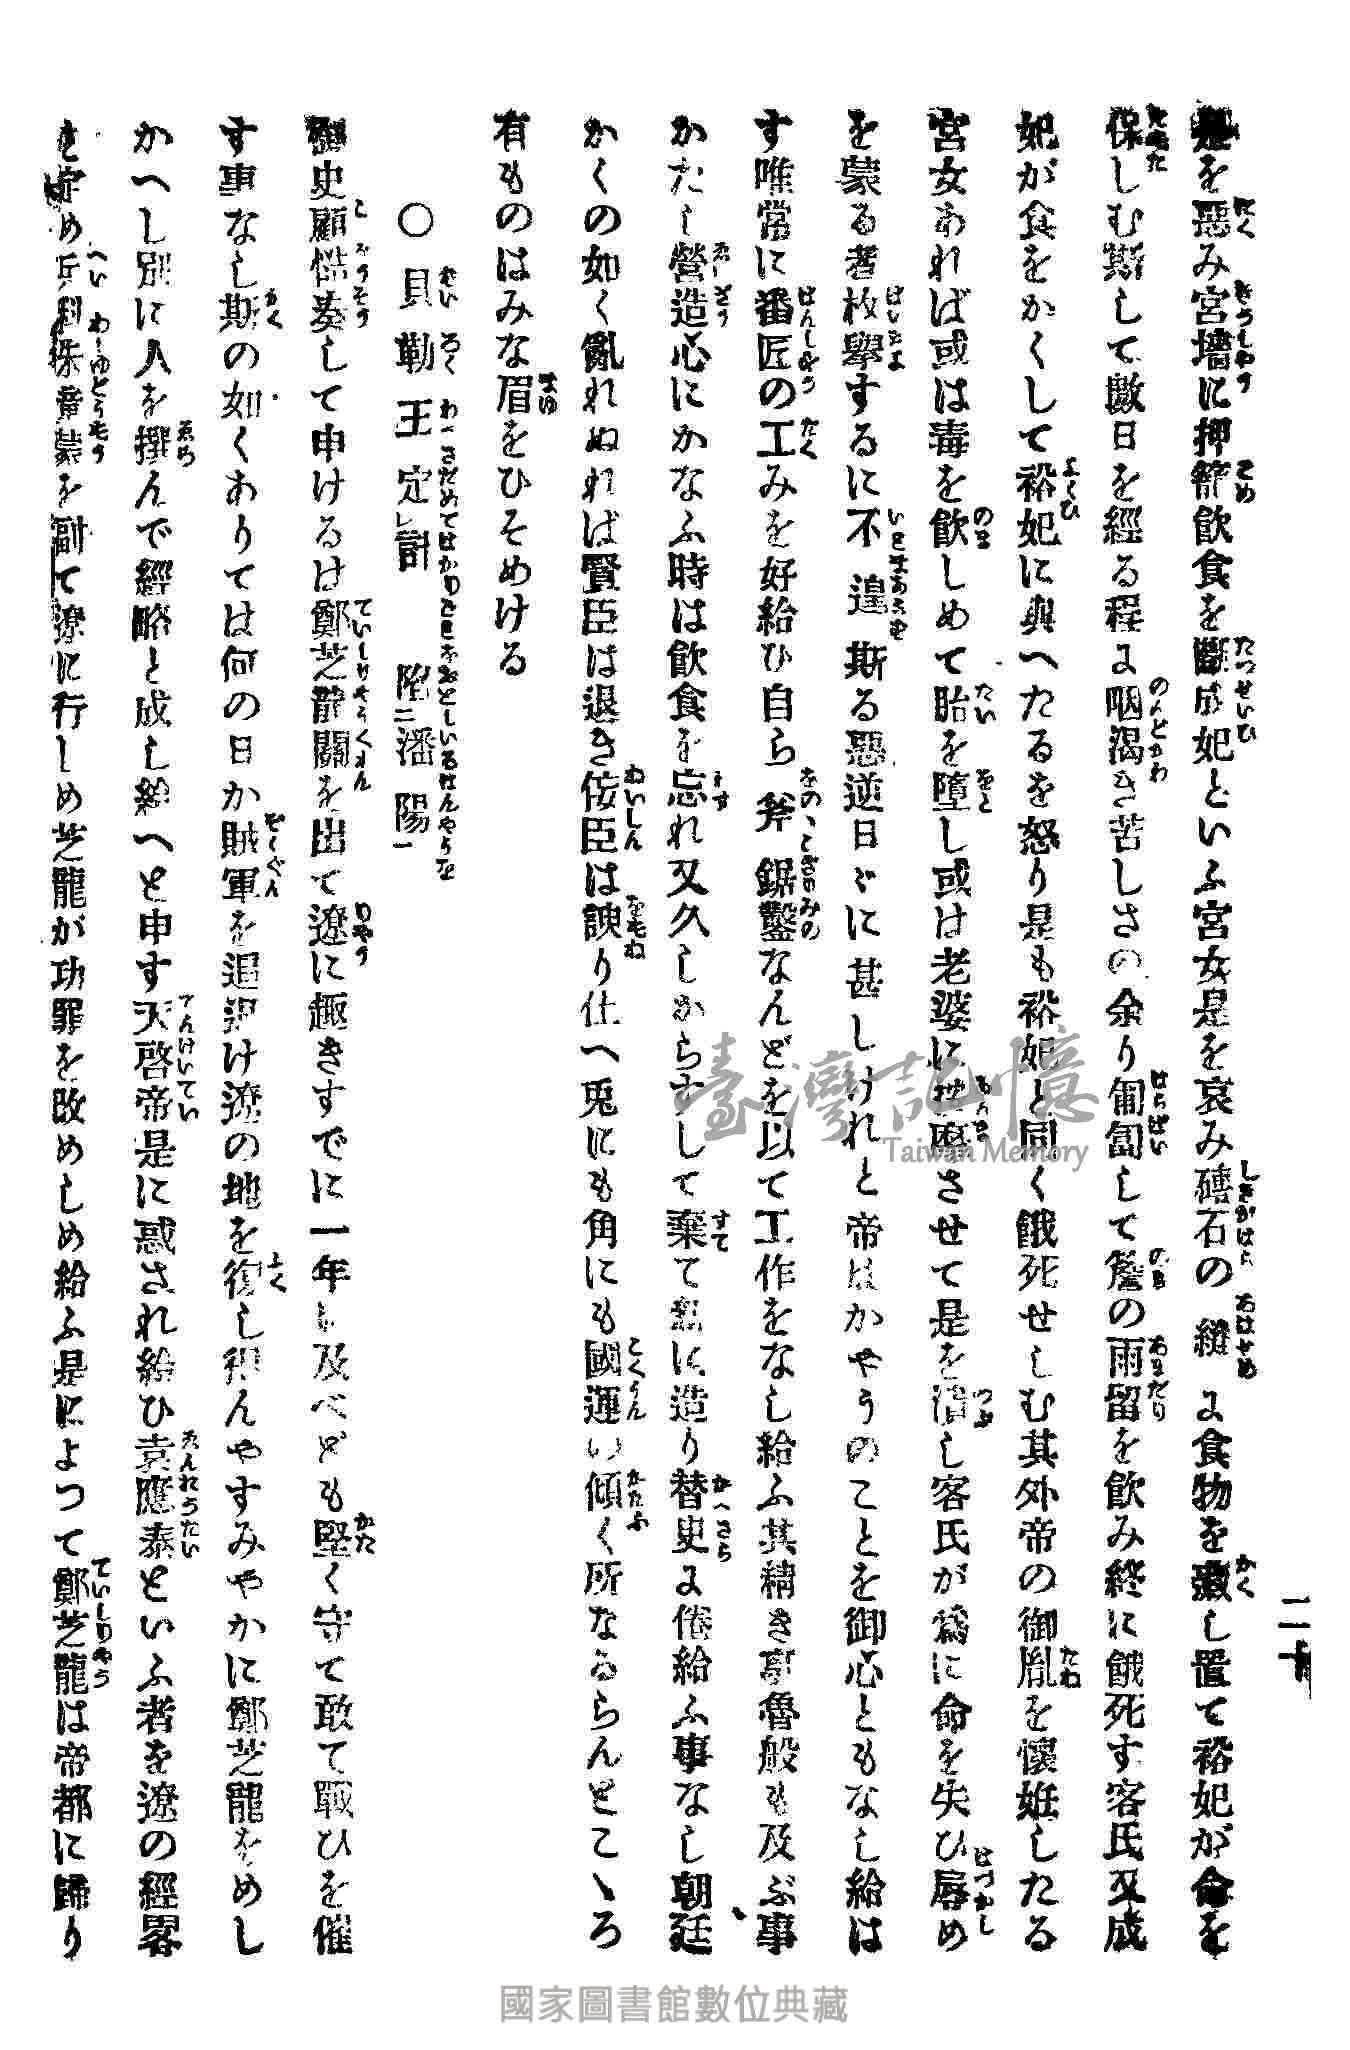 二十
是を惡み宮墻に押籠飲食を斷成妃といふ宮女是を哀み磚石の縫に食物を藏し置て裕妃が命を
保しむ斯して數日を經る程に咽渇き苦しさの余り匍匐して簷の雨留を飲み終に餓死す客氏又成
妃が食をかくして裕妃に與へたるを怒り是も裕妃と同く餓死せしむ其外帝の御胤を懷姙したる
宮女あれば或は毒を飲しめて胎を墮し或は老婆に させて是を し客氏が爲に命を失ひ辱め
を蒙る者枚擧するに不遑斯る惡逆日〻に甚しけれと帝はかやうのことを御心ともなし給は
す唯常に番匠の工みを好給ひ自ら斧鋸鑿なんどを以て工作をなし給ふ其精き事魯般も及ぶ事
かたし營造心にかなふ時は飲食を忘れ又久しからすして棄て に造り替更に倦給ふ事なし朝廷
かくの如く亂れぬれば賢臣は退き佞臣は諛り仕へ兎にも角にも國運の傾く所なるらんとこゝろ
有ものはみな眉をひそめける
〇貝勒王定計陷潘陽
御史顧慥奏して申けるは鄭芝龍關を出て遼に趣きすでに一年に及べども堅く守て敢て戰ひを催
す事なし斯の如くありては何の日か賊軍を追退け遼の地を復し得んやすみやかに鄭芝龍をめし
かへし別に人を撰んで經略と成し給へと申す天啓帝是に惑され給ひ袁應泰といふ者を遼の經畧
と定め兵科 童蒙を副て遼に行しめ芝龍が功罪を改めしめ給ふ是によつて鄭芝龍は帝都に歸り
臺灣記憶
Taiwan Memory
國家圖書館數位典藏